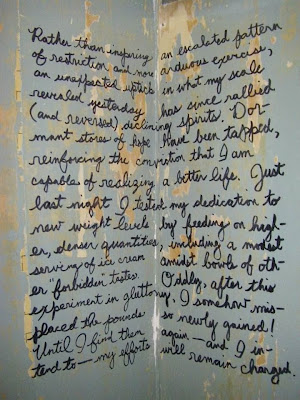 Rather than inspiring an escalated pattern
of restriction and more arduous exercise,
an unexpected uptick in what my scale
revealed yesterday has since rallied
(and reversed) declining spirits. Dor-
mant stores of hope have been tapped,
reinforcing the conviction that I am
capable of realizing a better life. Just
last night I tested my dedication to
new weight levels by feeding on high-
er, denser quantities, including a modest
serving of ice cream amidst bowls of oth-
er "forbidden" tastes. Oddly, after this
experiment in gluttony, I somehow mis-
placed the pounds so newly gained!
Until I find them again—and I in-
tend to—my efforts will remain changed.